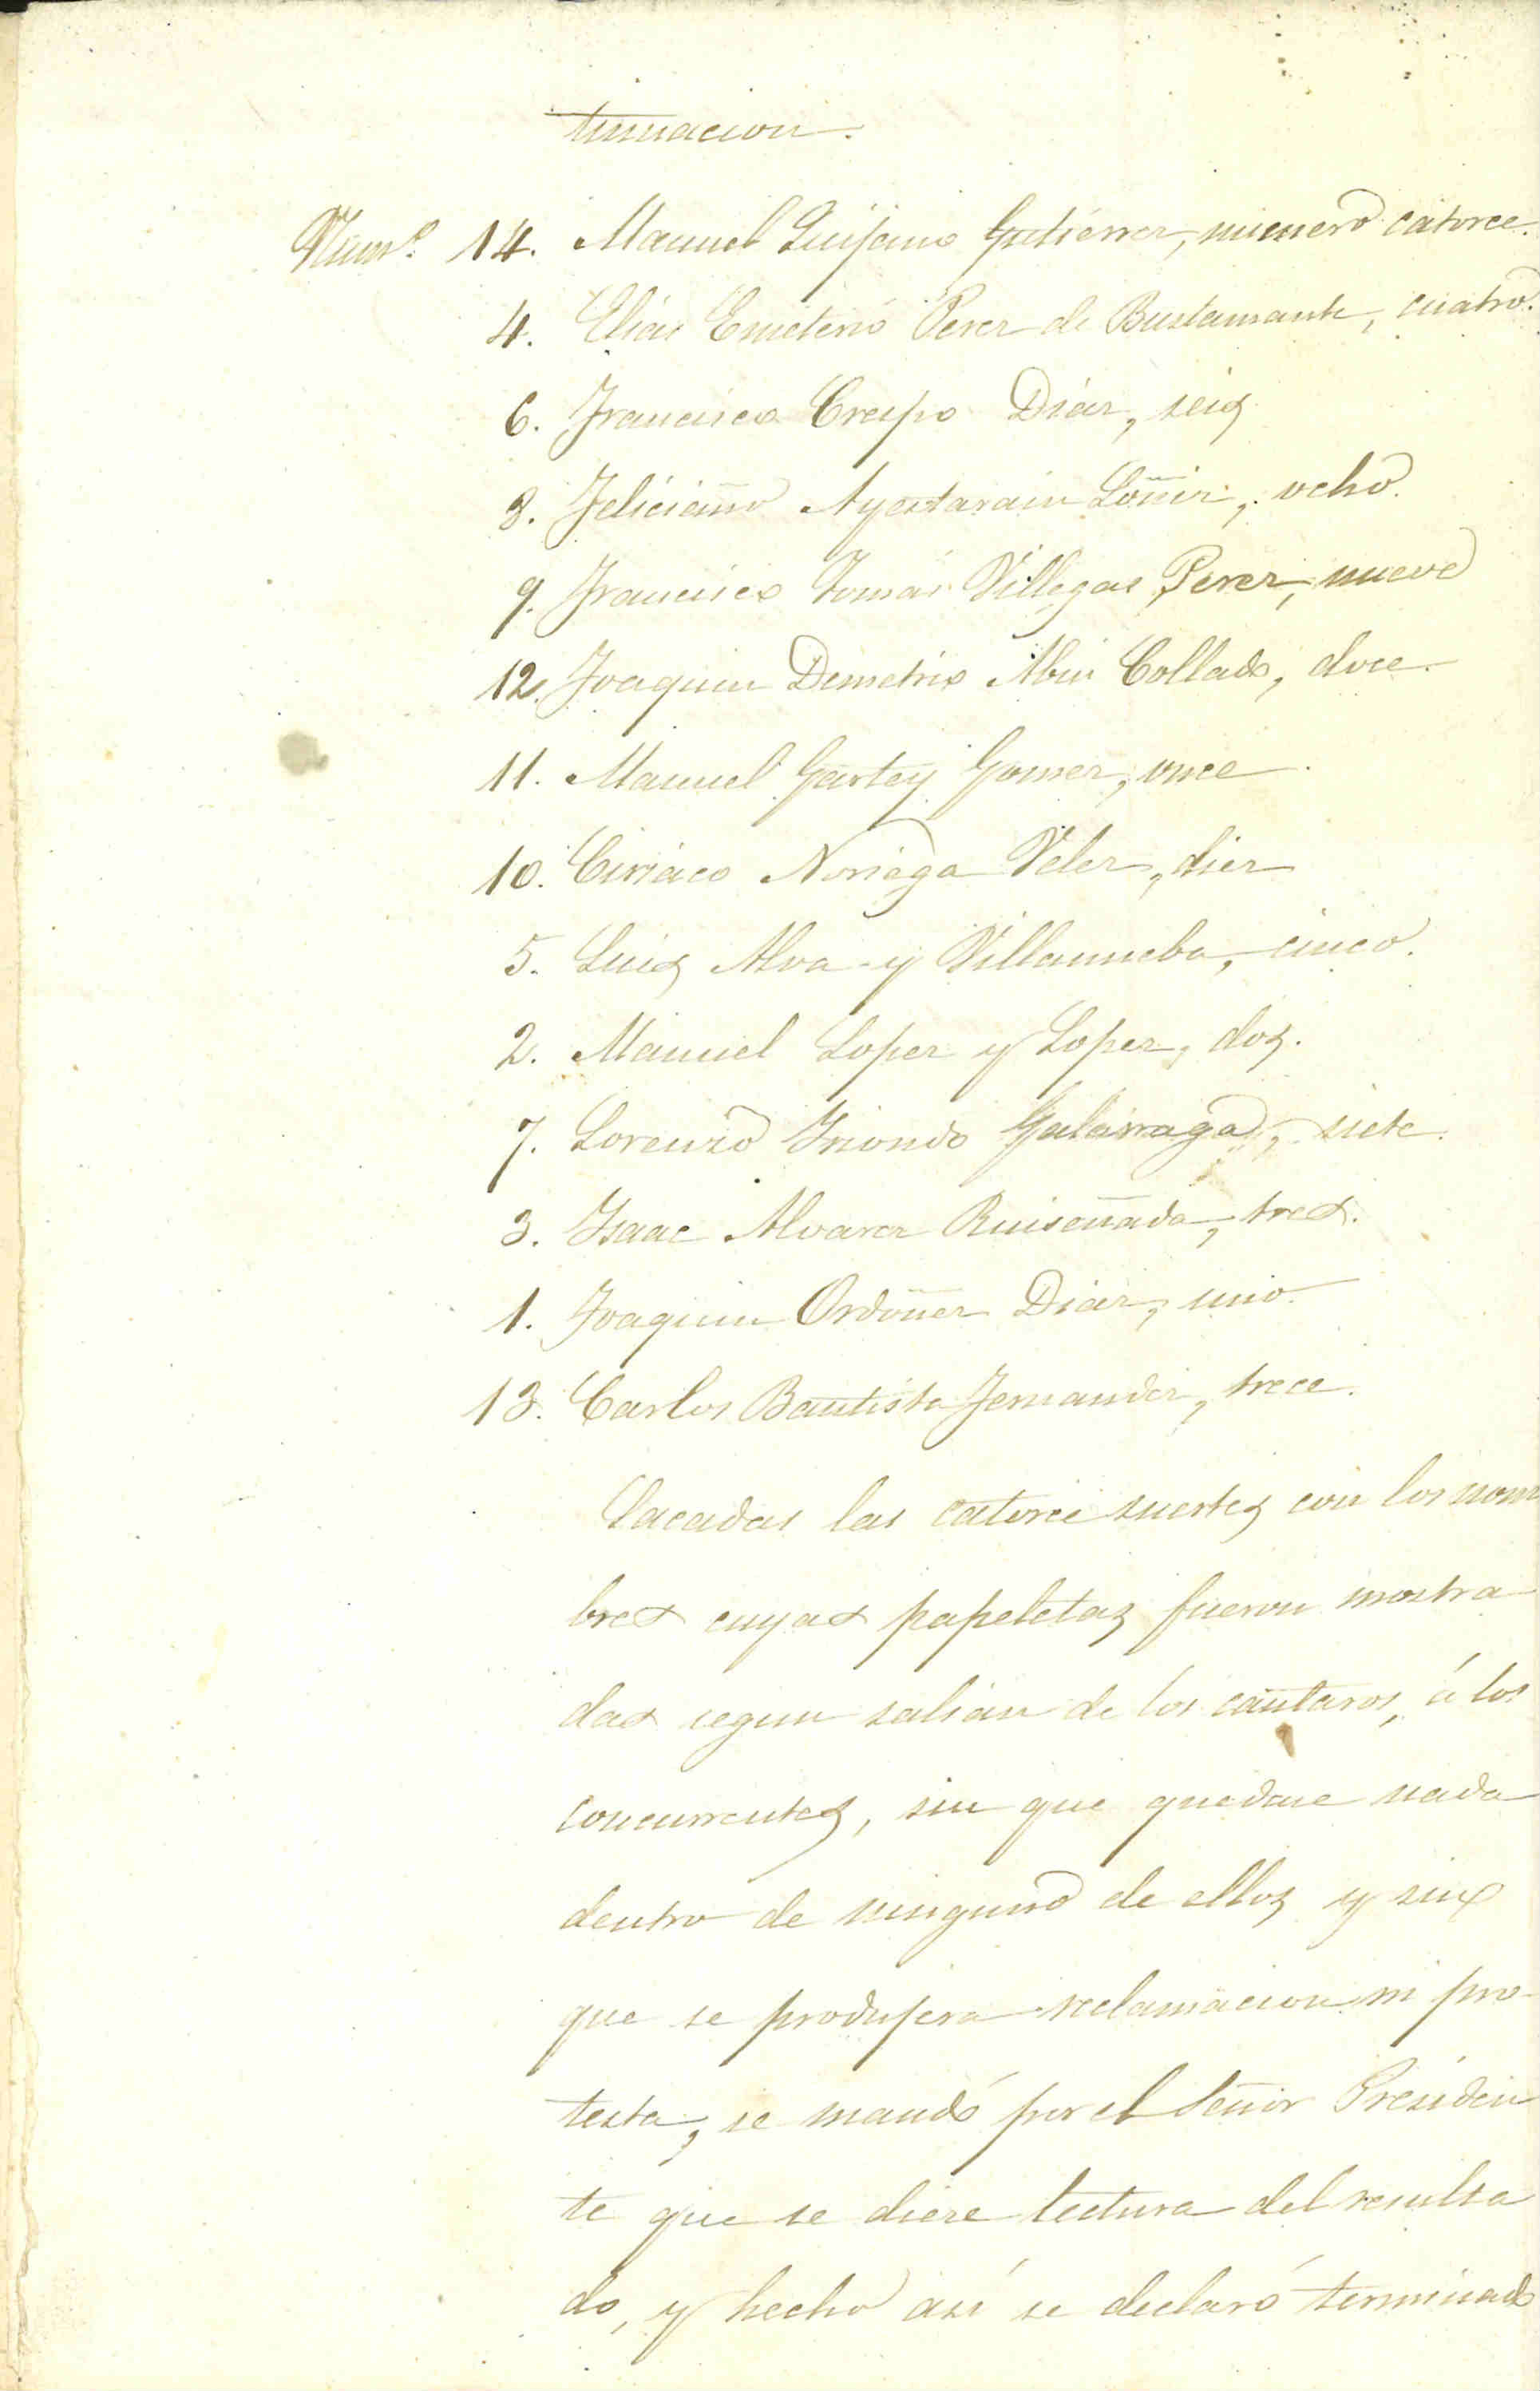 tinuacion.
Num.º 14. Manuel Quijano Gutiérrez, número catorce.
4. Elías Emeterio Perez de Bustamante, cuatro.
6. Francisco Crespo Diáz, seis.
8. Feliciano Ayestarain Loñiz, ocho.
9. Francisco Tomás Villegas Perez, nueve
12. Joaquin Demetrio Abin Collado, doce.
11. Manuel Gomez, once.
10. Ciriaco Noriega Velez, diez
5. Luis Alva y Villanueba, cinco.
2. Manuel Lopez y Lopez, dos.
7. Lorenzo Iriondo Galarraga, siete.
3. Isaac Alvarez Ruiseñada, tres.
1. Joaquin Ordoñez Diaz, uno.
13. Carlos Bautista Fernandez, trece.
Sacadas las catorce suertes con los nom
bres cuyas papeletas fueron mostra
das segun salian de los cántaros, á los
concurrentes, sin que quedase nada
dentro de ninguno de ellos y sin
que se produjera reclamacion ni pro-
testa, se mandó por el Señor Presiden
te que se diese lectura del resulta
do, y hecho así se declaró terminado